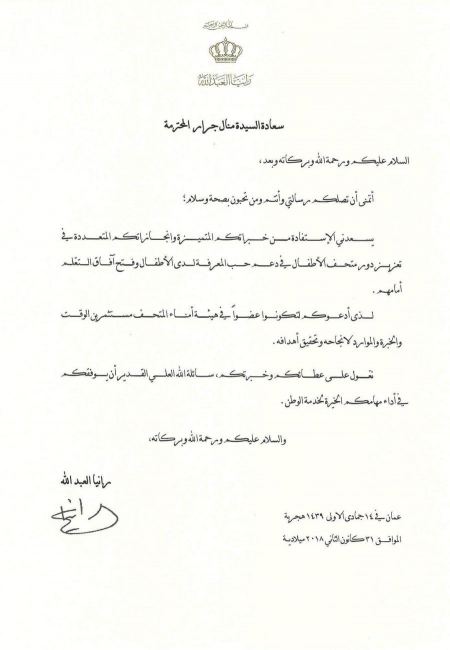 رانيا العبدالله
سعادة السيدة منال جرار المحترمة
السلام عليكم ورحمة الله وبركاته وبعد،
أتمنى أن تصلكم رسالتي وأنتم ومن تحبون بصحة وسلام؛
يسعدني الإستفادة من خبراتكم المتميزة وانجازاتكم المتعددة في
تعزيز دور متحف الأطفال في دعم حب المعرفة لدى الأطفال وفتح آفاق التعلم
أمامهم.
لذى أدعوكم لتكونوا عضواً في هيئة أمناء المتحف مستثمرين الوقت
والخبرة والموارد لانجاحه وتحقيق أهدافه.
نعول على عطائكم وخبرتكم، سائلة الله العلي القدير أن يوفقكم
في أداء مهامكم الخيرة لخدمة الوطن.
والسلام عليكم ورحمة الله وبركاته،
رانيا العبد الله
رانيا
عمان في ١٤ جمادى الاولى ١٤٣٩ هجرية
الموافق ٣١ كانون الثاني ٢٠١٨ ميلادية